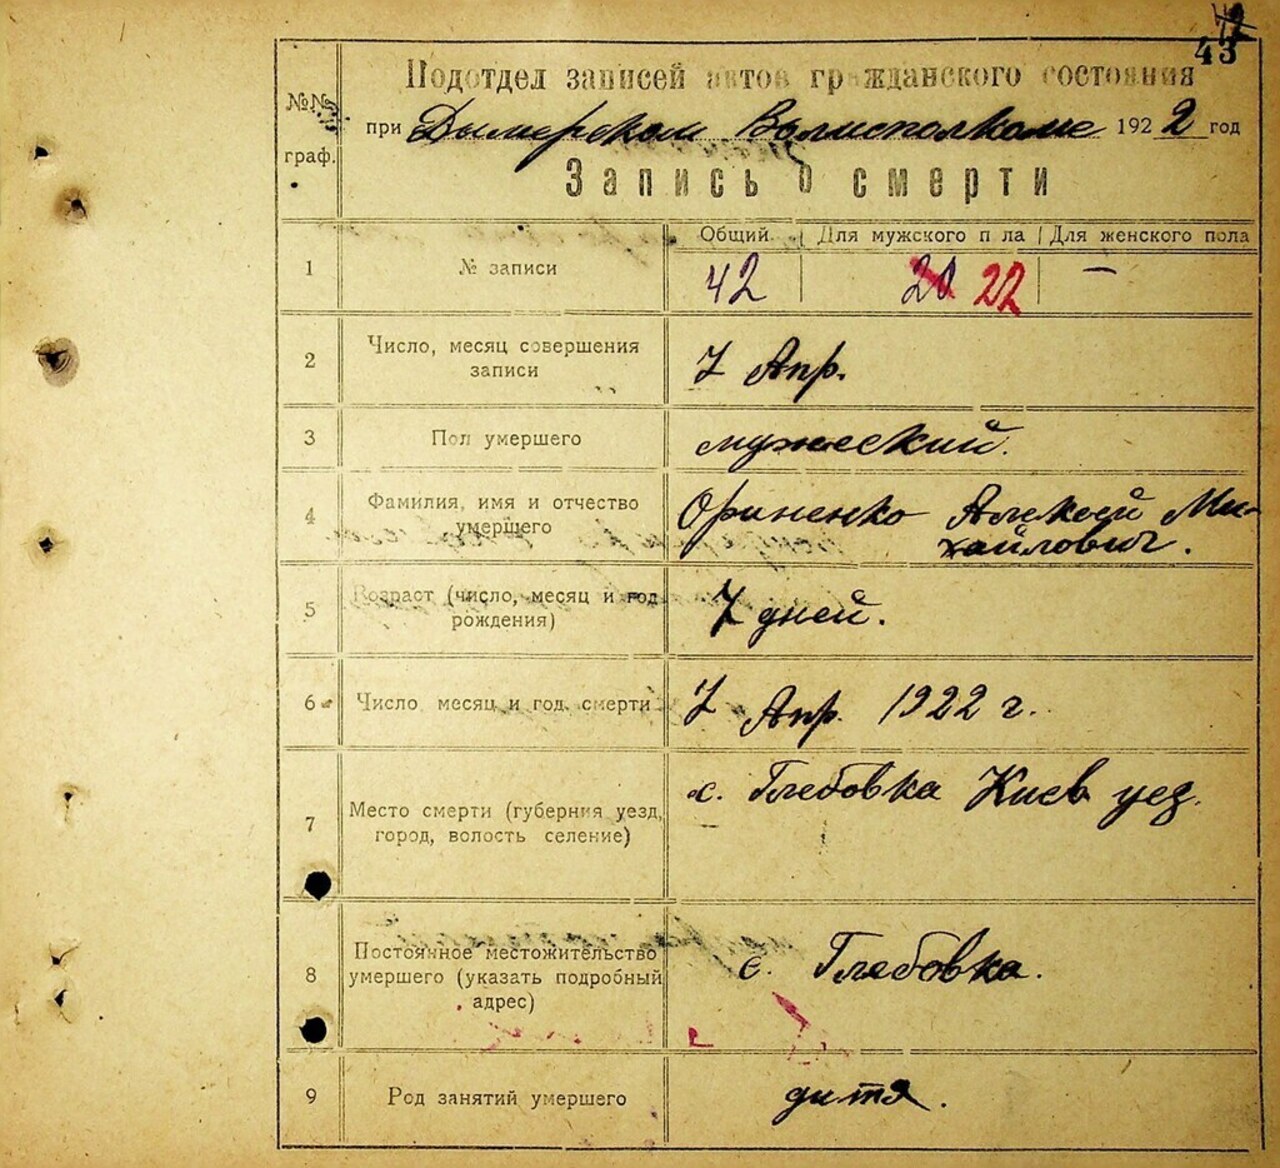 43
Подотдел записей актов гражданского состояния
№№ граф.
при Дымерском Волисполкоме 1922 год
Запись о смерти
Общий Для мужского пола Для женского пола
1 № записи 42 20 22 —
2 Число, месяц совершения
записи 7 Апр.
3 Пол умершего мужеский.
4 Фамилия, имя и отчество
умершего Ориненко Алексей Ми-
хайлович.
5 Возраст (число, месяц и год
рождения) 7 дней.
6 Число месяц и год смерти 7 Апр. 1922 г.
7 Место смерти (губерния уезд,
город, волость селение) с. Глебовка Киев уез.
8 Постоянное местожительство
умершего (указать подробный
адрес) с. Глебовка.
9 Род занятий умершего дитя.